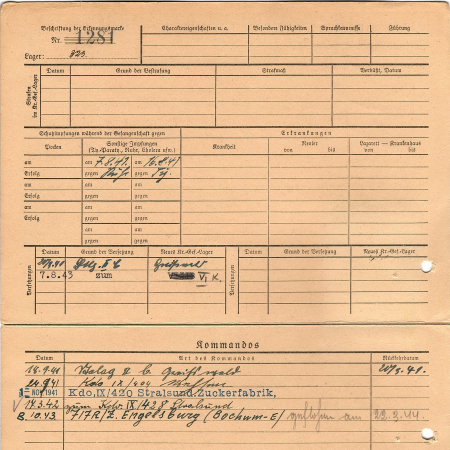 Beschriftung der Erkennungsmarke Charaktereigenschaften u. a. Besondere Fähigkeiten Sprachkenntnisse Führung
Nr. 1281
Lager: 323
Strafen im Kr.-Gef.-Lager
Datum Grund der Bestrafung Strafmaß Verbüßt, Datum
Schutzimpfungen während der Gefangenschaft gegen Erkrankungen
Pocken Sonstige Impfungen (Ty.-Paraty., Ruhr, Cholera usw.) Krankheit Revier von bis Lazarett – Krankenhaus von bis
am am 7.8.41 am 16.8.41
Erfolg gegen gegen
am am am
Erfolg gegen gegen
am am am
Erfolg gegen gegen
am am
gegen gegen
Versetzungen Datum Grund der Versetzung Neues Kr.-Gef.-Lager Versetzungen Datum Grund der Versetzung Neues Kr.-Gef.-Lager
II C Greifswald
7.8.43 zum VI K.
Kommandos
Datum Art des Kommandos Rückkehrdatum
18.9.41 Stalag II C Greifswald
24.9.41 Kdo IX/404
1 - NOV 1941 Kdo. IX/420 Stralsund, Zuckerfabrik,
17.3.42 zum Kdo. IX/428 Stralsund
8.10.43 717R/Z. Engelsburg (Bochum-E) geflohen am 22.3.44.